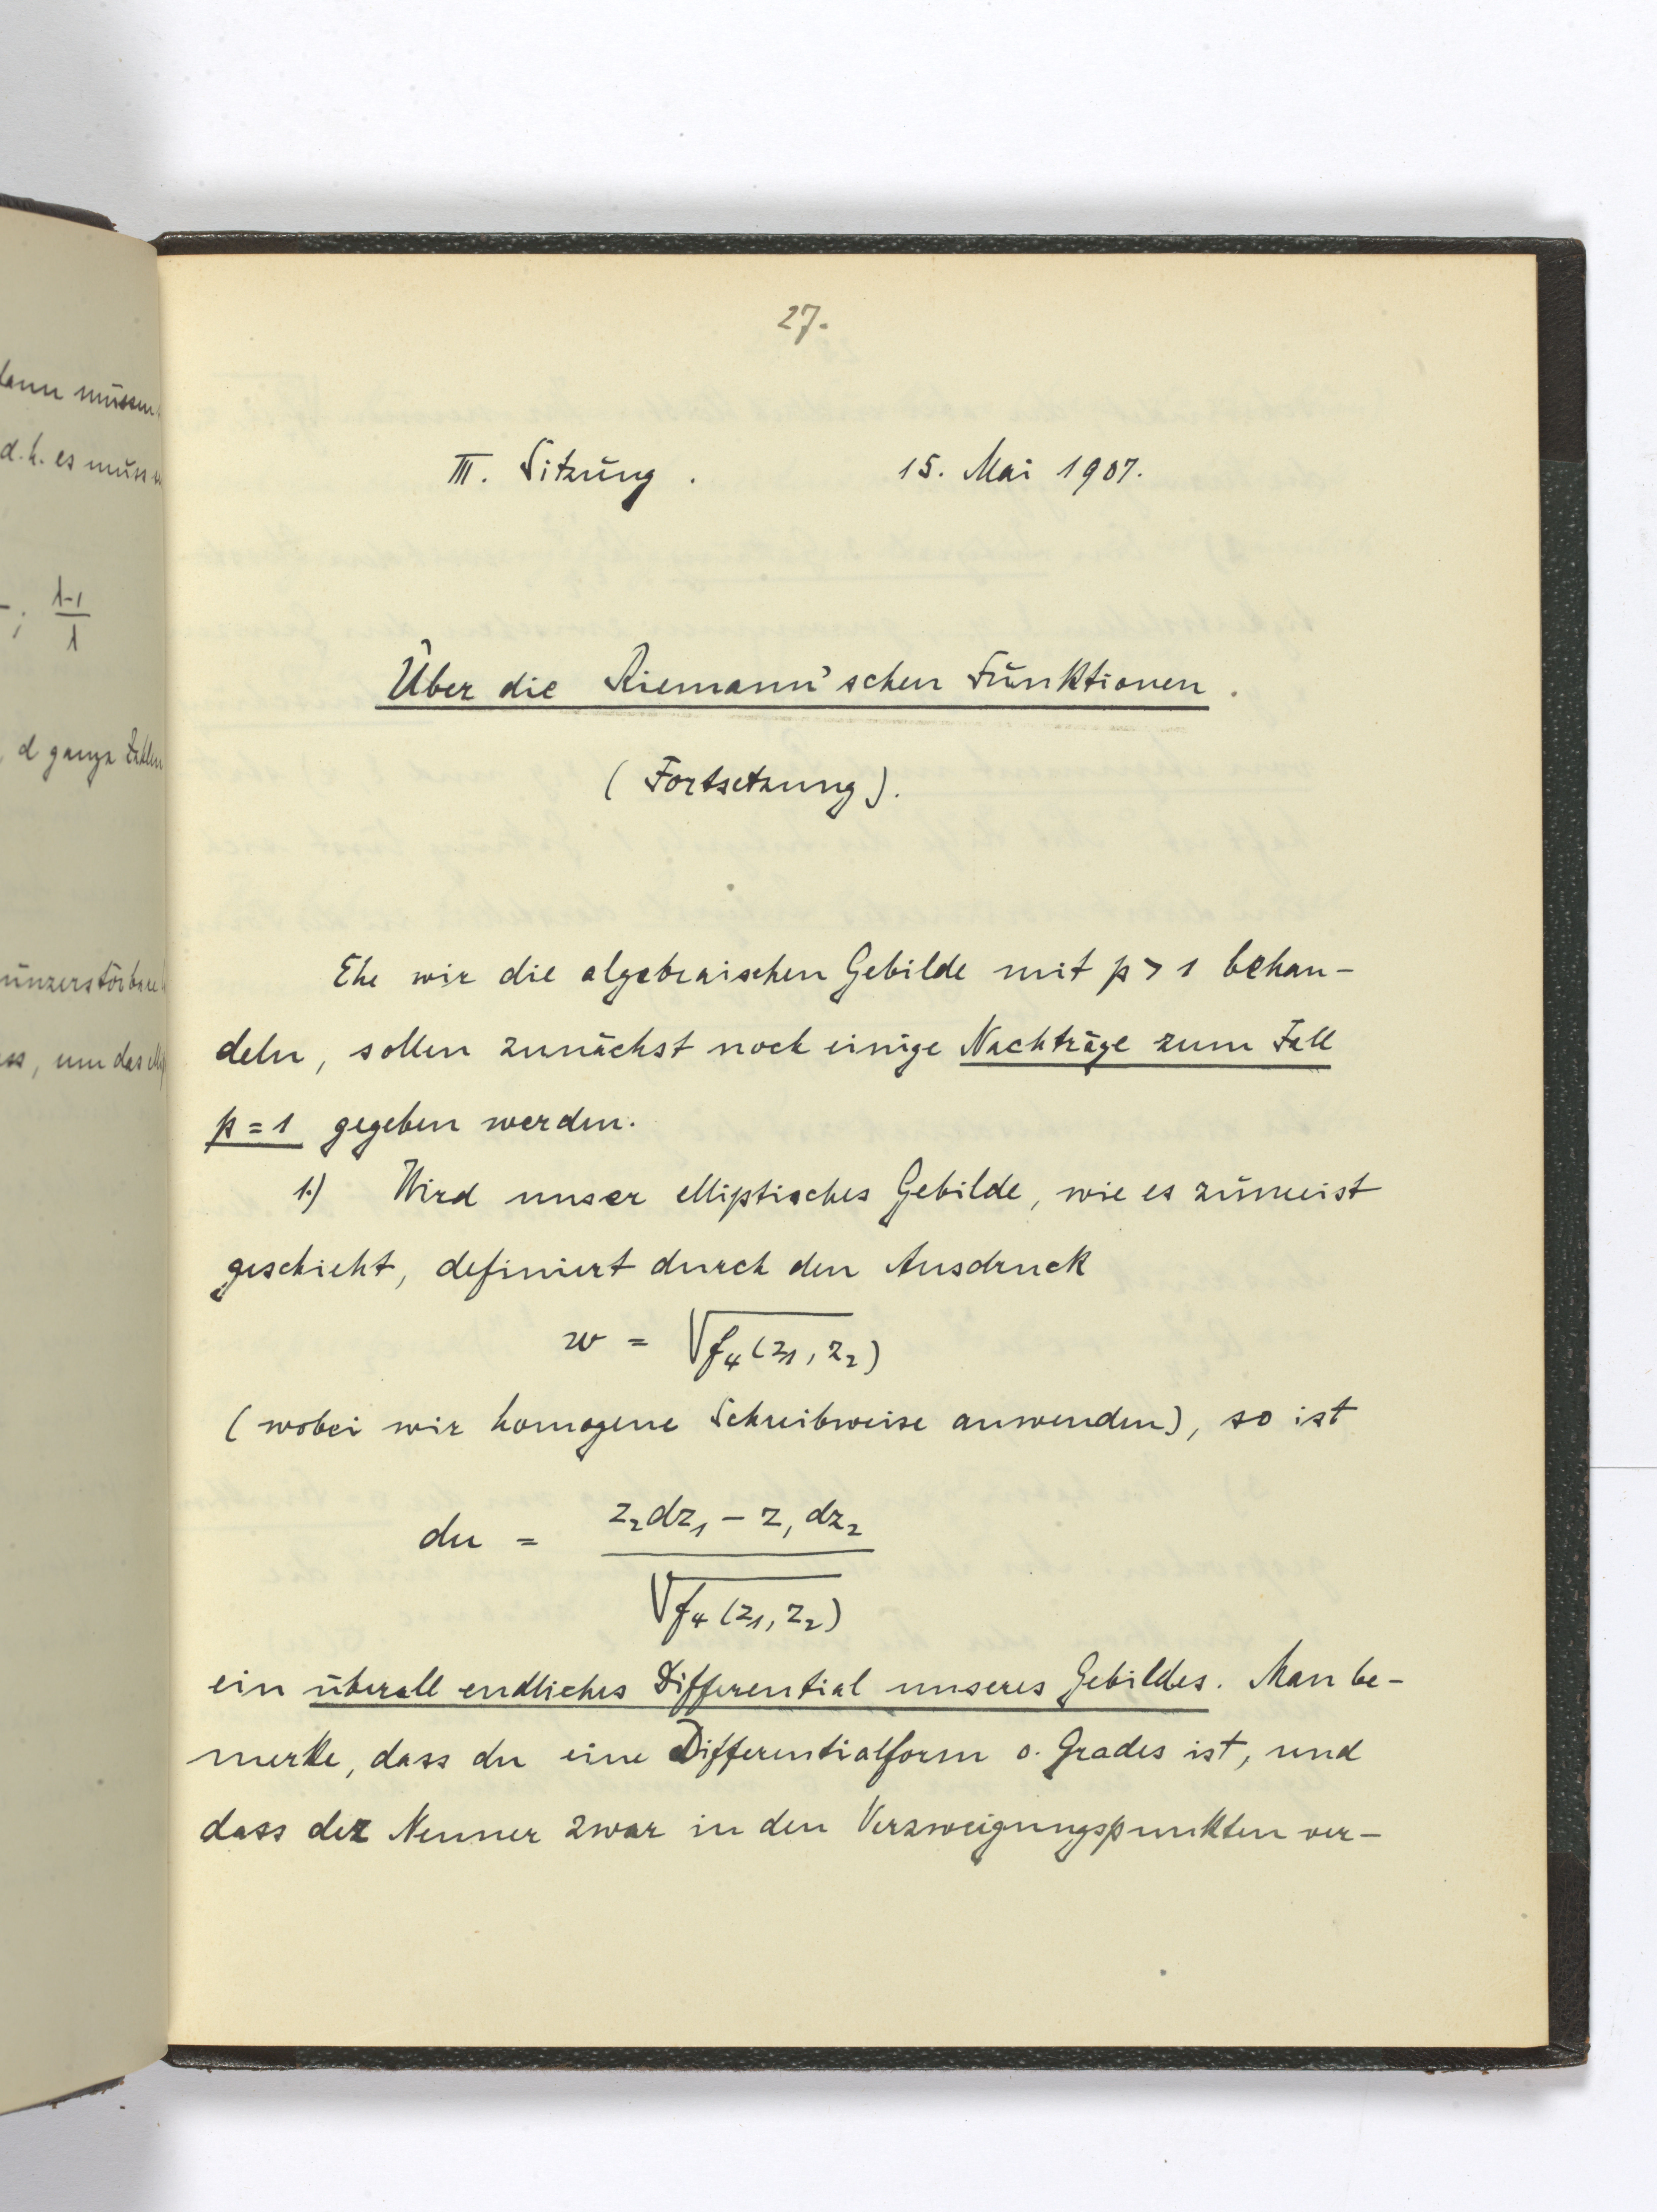 dann müssen
d. h. es müsse
; \frac{λ-1}{λ}
, d ganze Zahlen
unzerstörbare
ss, um das ell
27.
III. Sitzung. 15. Mai 1907.
Über die Riemann'schen Funktionen.
(Fortsetzung).
Ehe wir die algebraischen Gebilde mit p > 1 behan-
deln, sollen zunächst noch einige Nachträge zum Fall
p = 1 gegeben werden.
1.) Wird unser elliptisches Gebilde, wie es zumeist
geschieht, definiert durch den Ausdruck
w = \sqrt{f_4(z_1, z_2)}
(wobei wir homogene Schreibweise anwenden), so ist
du = \frac{z_2 dz_1 - z_1 dz_2}{\sqrt{f_4(z_1, z_2)}}
ein überall endliches Differential unseres Gebildes. Man be-
merke, dass du eine Differentialform 0. Grades ist, und
dass der Nenner zwar in den Verzweigungspunkten ver-